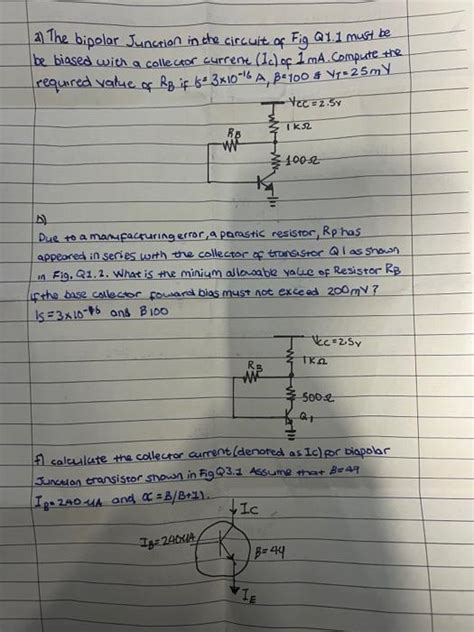 a) The bipolar Junction in the circuit of Fig Q1.1 must be
be biased with a collector current (Ic) of 1mA. Compute the
required value of RB if Is=3x10-16 A, B=100 & VT=25mV
Vcc=2.5v
RB
1kΩ
100Ω
b)
Due to a manyfacturing error, a parastic resistor, Rp has
appeared in series with the collector of transistor Q1 as shown
in Fig. Q1.2. What is the minium allowable value of Resistor RB
if the base collector foward bias must not exceed 200mV?
Is=3x10-16 and B100
Vcc=2.5v
RB
1kΩ
500Ω
Q1
f) calculate the collector current (denoted as Ic) for biapolar
Junction transistor shown in Fig Q3.1 Assume that B=49
IB=240uA and α=B/B+1).
Ic
IB=240uA
B=44
IE